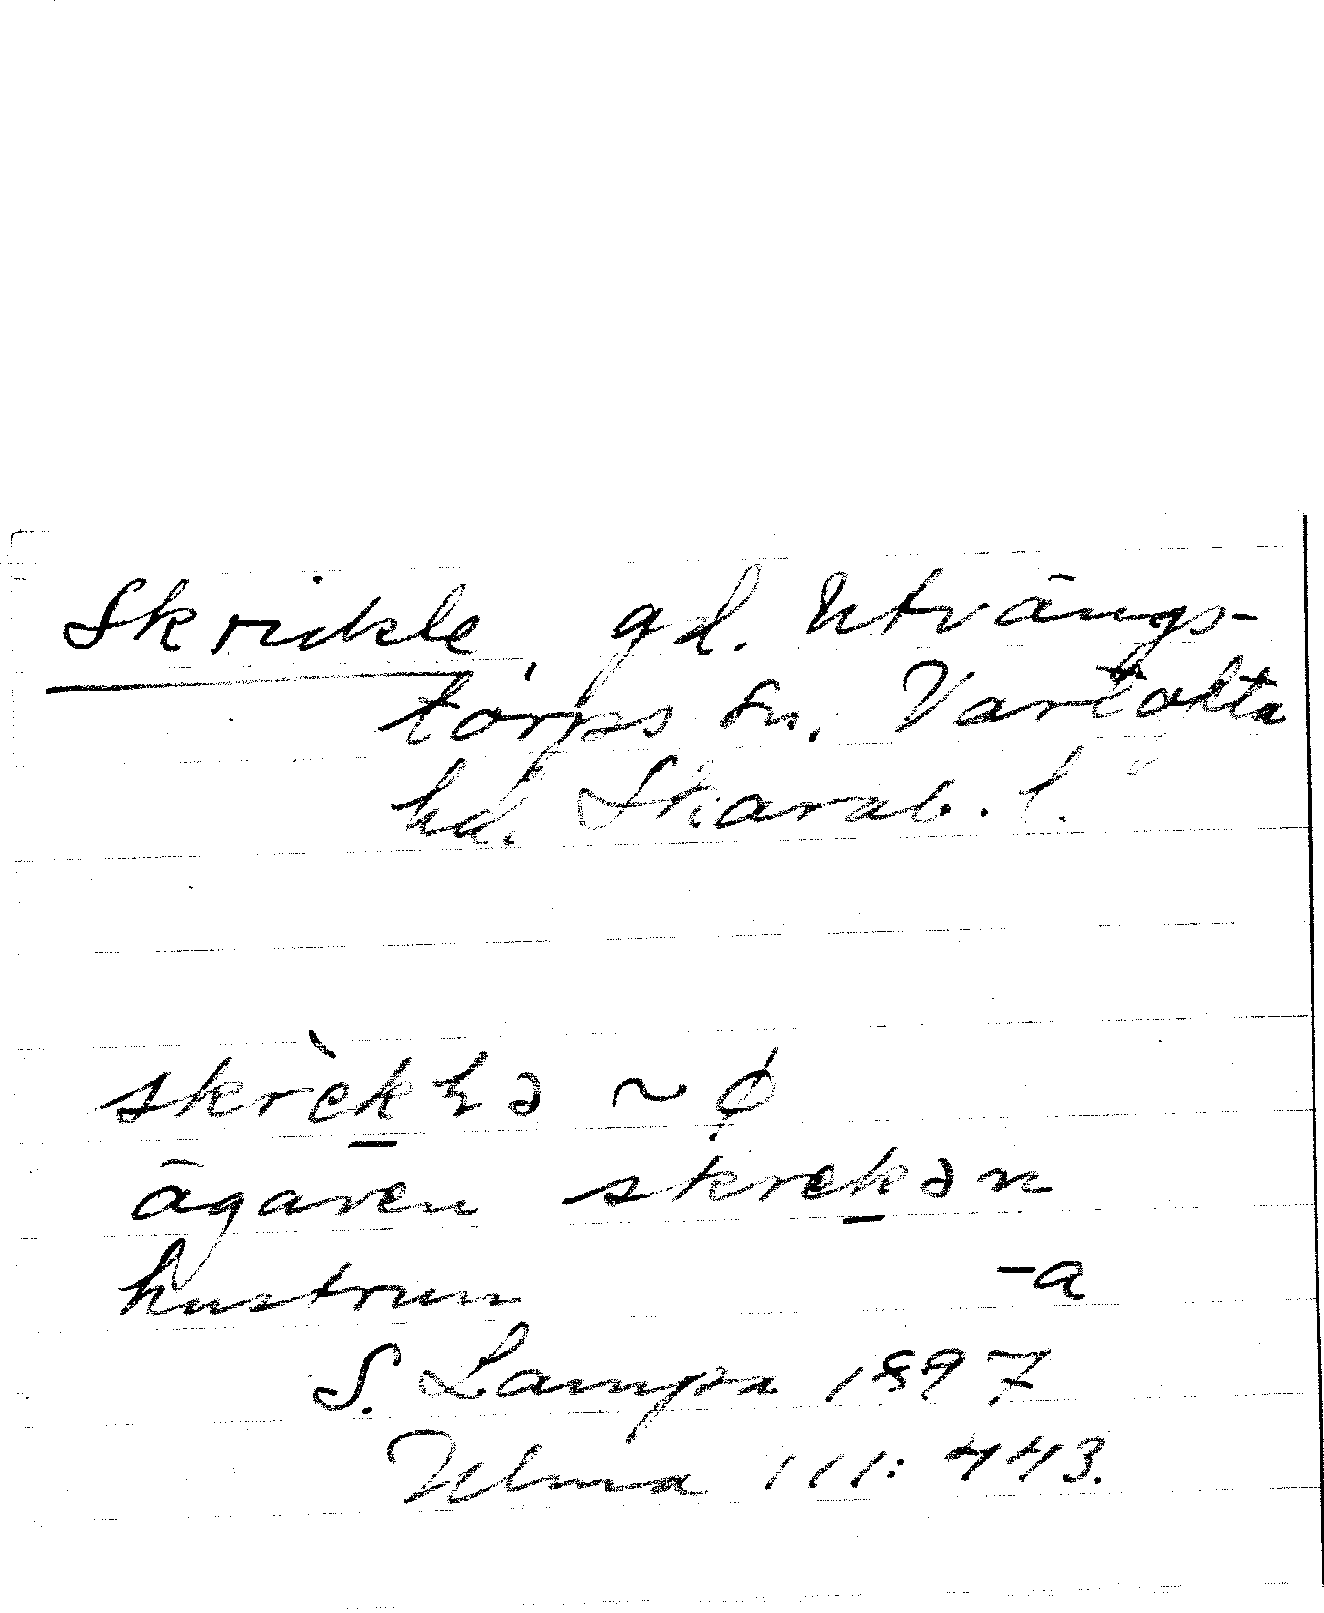 Skrickle, gd. Utvängs-
torps sn, Vartofta
hd. Skarab. l.
skrèkhə ~ ϕ
ägaren skrekən
hustrun -a
S. Lampa 1897
Ulma 111: 443.